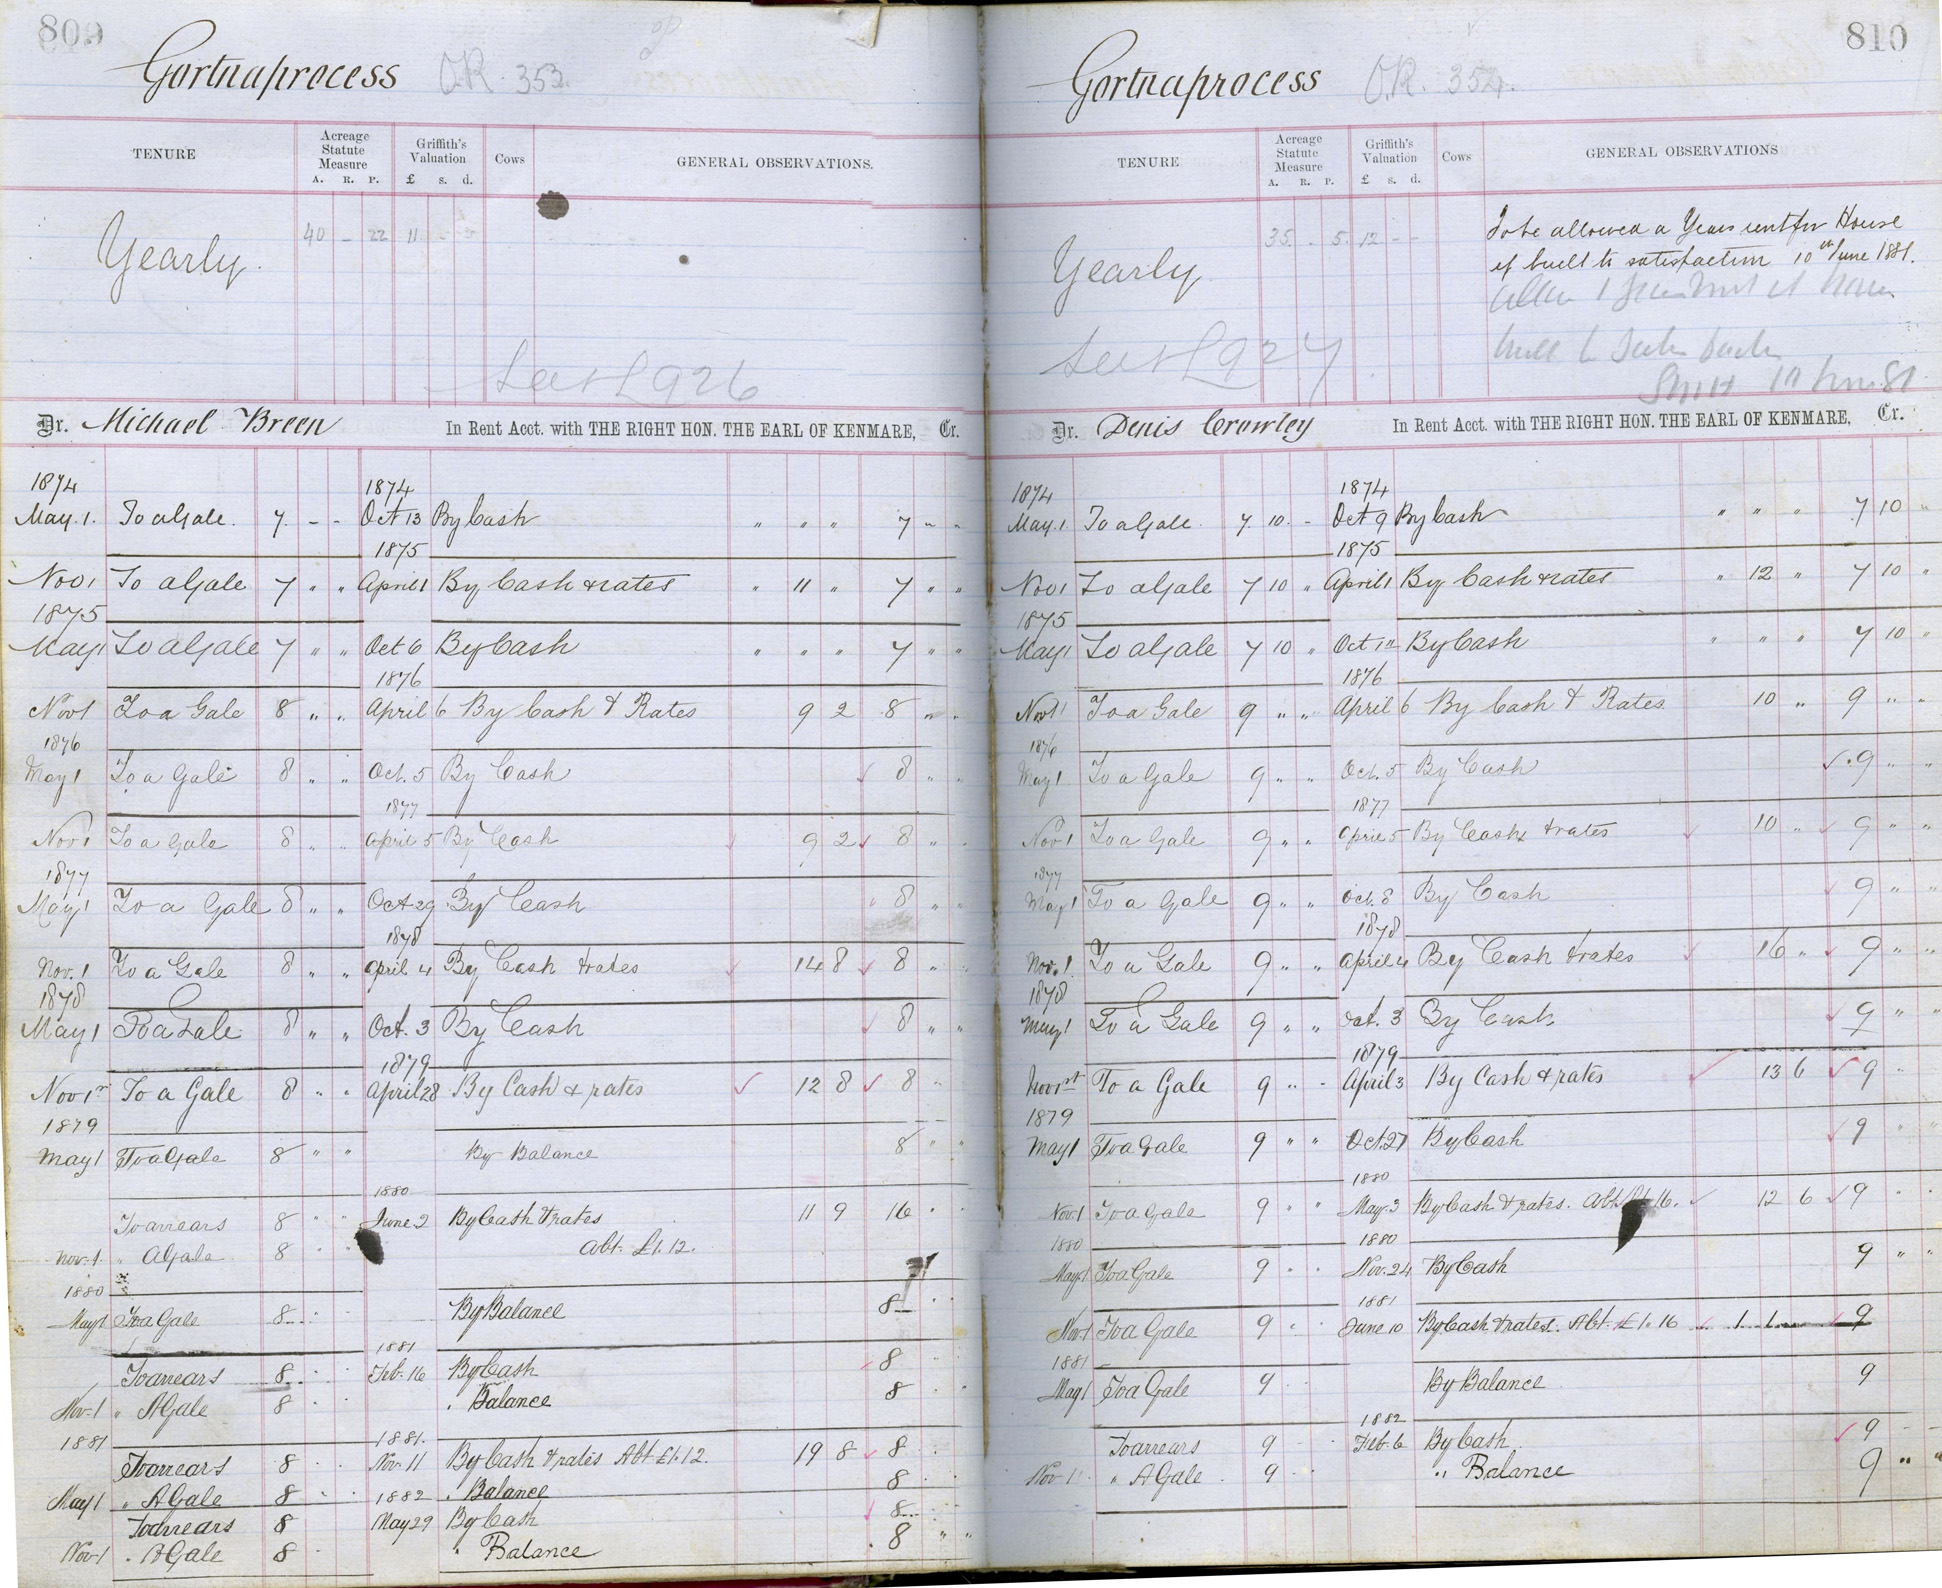 809
Gortnaprocess O.R. 353.
TENURE
Acreage Statute Measure
A. R. P.
Griffith's Valuation
£ s. d.
Cows
GENERAL OBSERVATIONS.
Yearly.
40 - 22 11 - -
926
Dr. Michael Breen In Rent Acct. with THE RIGHT HON. THE EARL OF KENMARE, Cr.
1874 1874
May. 1. To a Gale. 7 - - Oct 13 By Cash " " " 7 - -
1875
Nov 1 To a Gale 7 " " April 1 By Cash & rates " 11 " 7 " "
1875
May 1 To a Gale 7 " " Oct 6 By Cash " " " 7 " "
1876
Nov 1 To a Gale 8 " " April 6 By Cash & Rates 9 2 8 " "
1876
May 1 To a Gale 8 " " Oct. 5 By Cash 8 " "
1877
Nov 1 To a Gale 8 " " April 5 By Cash 9 2 8 " "
1877
May 1 To a Gale 8 " " Oct 29 By Cash 8 " "
1878
Nov. 1 To a Gale 8 " " April 4 By Cash & rates 14 8 8 "
1878
May 1 To a Gale 8 " " Oct. 3 By Cash 8 " "
1879
Nov 1st To a Gale 8 " " April 28 By Cash & rates 12 8 8 "
1879
May 1 To a Gale 8 " " By Balance 8 " "
1880
To arrears 8 " " June 2 By Cash & rates 11 9 16 " "
Nov. 1 " A Gale 8 " " Abt. £1.12.
1880
May 1 To a Gale 8 " " By Balance 8 " "
1881
To arrears 8 " " Feb. 16 By Cash 8 " "
Nov. 1 " A Gale 8 " " " Balance 8 " "
1881 1881.
To arrears 8 " " Nov. 11 By Cash & rates Abt £1.12. 19 8 8 " "
May 1 " A Gale 8 " " 1882 " Balance 8 " "
To arrears 8 May 29 By Cash 8
Nov 1 " A Gale 8 " " Balance 8 " "
810
Gortnaprocess O.R. 354.
TENURE
Acreage Statute Measure
A. R. P.
Griffith's Valuation
£ s. d.
Cows
GENERAL OBSERVATIONS
Yearly
35 . 5. 12 - -
To be allowed a Years rent for House
if built to satisfaction 10th June 1881.
927
Dr. Denis Crowley In Rent Acct. with THE RIGHT HON. THE EARL OF KENMARE, Cr.
1874 1874
May. 1 To a Gale 7 10 - Oct 9 By Cash " " " 7 10 "
1875
Nov 1 To a Gale 7 10 " April 1 By Cash & rates " 12 " 7 10 "
1875
May 1 To a Gale 7 10 " Oct By Cash " " " 7 10 "
1876
Nov 1 To a Gale 9 " " April 6 By Cash & Rates 10 " 9 " "
1876
May 1 To a Gale 9 " " Oct. 5 By Cash 9 " "
1877
Nov 1 To a Gale 9 " " April 5 By Cash & rates 10 " 9 " "
1877
May 1 To a Gale 9 " " Oct. 8 By Cash 9 " "
1878
Nov. 1 To a Gale 9 " " April 4 By Cash & rates 16 " 9 " "
1878
May 1 To a Gale 9 " " Oct. 3 By Cash 9 " "
1879
Nov 1st To a Gale 9 " " April 3 By Cash & rates 13 6 9 "
1879
May 1 To a Gale 9 " " Oct. 27 By Cash 9 " "
1880
Nov. 1 To a Gale 9 " " May. 3 By Cash & rates. Abt. 16. 12 6 9 " "
1880 1880
May 1 To a Gale 9 " " Nov. 24 By Cash 9 " "
1881
Nov. 1 To a Gale 9 " " June 10 By Cash & rates. Abt. £1.16 1 1 9
1881
May 1 To a Gale 9 " " By Balance 9
1882
To arrears 9 " " Feb. 6 By Cash 9 - -
Nov 1 " A Gale 9 " " " Balance 9 " "